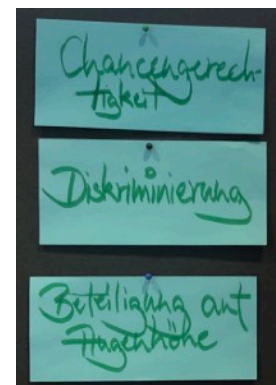 Chancengerech-
tigkeit
Diskriminierung
Beteiligung auf
Augenhöhe